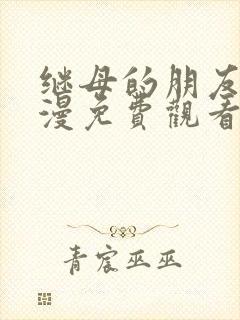 继母的朋友
漫免費觀看
青宸巫巫